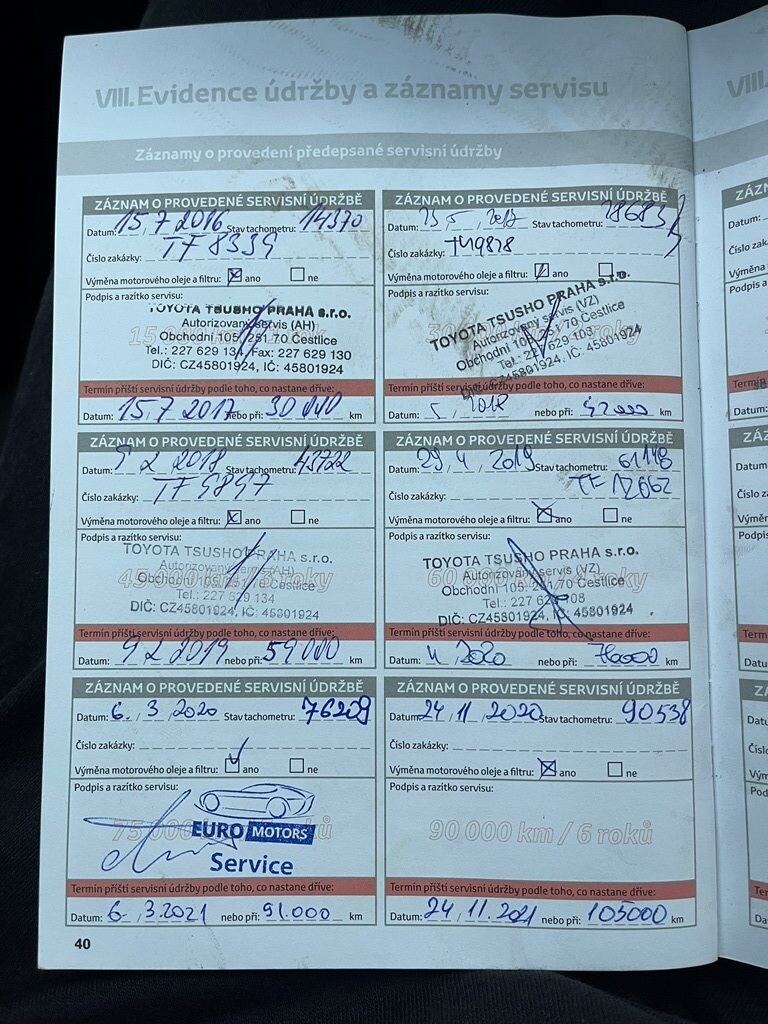 VIII. Evidence údržby a záznamy servisu
Záznamy o provedení předepsané servisní údržby
ZÁZNAM O PROVEDENÉ SERVISNÍ ÚDRŽBĚ
Datum: 15.7 2016 Stav tachometru: 14370
Číslo zakázky: TF 8339
Výměna motorového oleje a filtru: ano ne
Podpis a razítko servisu:
TOYOTA TSUSHO PRAHA s.r.o.
Autorizovaný servis (AH)
Obchodní 105, 251 70 Čestlice
Tel.: 227 629 134, Fax: 227 629 130
DIČ: CZ45801924, IČ: 45801924
Termín příští servisní údržby podle toho, co nastane dříve:
Datum: 15.7 2017 nebo při: 30 000 km
ZÁZNAM O PROVEDENÉ SERVISNÍ ÚDRŽBĚ
Datum: 5 2017 Stav tachometru:
Číslo zakázky: TM9828
Výměna motorového oleje a filtru: ano
Podpis a razítko servisu:
TOYOTA TSUSHO PRAHA s.r.o.
Autorizovaný servis (VZ)
Obchodní 105, 251 70 Čestlice
Tel.: 227 629 103
DIČ: CZ45801924, IČ: 45801924
Termín příští servisní údržby podle toho, co nastane dříve:
Datum: 5 2018 nebo při: km
ZÁZNAM O PROVEDENÉ SERVISNÍ ÚDRŽBĚ
Datum: 9 2 2018 Stav tachometru: 43722
Číslo zakázky: TF 9897
Výměna motorového oleje a filtru: ano ne
Podpis a razítko servisu:
45 000 km / 3 roky
TOYOTA TSUSHO PRAHA s.r.o.
Autorizovaný servis (AH)
Obchodní 105, 251 70 Čestlice
Tel.: 227 629 134
DIČ: CZ45801924, IČ: 45801924
Termín příští servisní údržby podle toho, co nastane dříve:
Datum: 9 2 2019 nebo při: 59 000 km
ZÁZNAM O PROVEDENÉ SERVISNÍ ÚDRŽBĚ
Datum: 29 4 2019 Stav tachometru: 61148
Číslo zakázky: TF 12662
Výměna motorového oleje a filtru: ano ne
Podpis a razítko servisu:
60 000 km / 4 roky
TOYOTA TSUSHO PRAHA s.r.o.
Autorizovaný servis (VZ)
Obchodní 105, 251 70 Čestlice
Tel.: 227 629
DIČ: CZ45801924, IČ: 45801924
Termín příští servisní údržby podle toho, co nastane dříve:
Datum: 4 2020 nebo při: 76000 km
ZÁZNAM O PROVEDENÉ SERVISNÍ ÚDRŽBĚ
Datum: 6. 3 2020 Stav tachometru: 76209
Číslo zakázky:
Výměna motorového oleje a filtru: ano ne
Podpis a razítko servisu:
EURO MOTORS
Service
Termín příští servisní údržby podle toho, co nastane dříve:
Datum: 6. 3.2021 nebo při: 91.000 km
ZÁZNAM O PROVEDENÉ SERVISNÍ ÚDRŽBĚ
Datum: 24 11 2020 Stav tachometru: 90538
Číslo zakázky:
Výměna motorového oleje a filtru: ano ne
Podpis a razítko servisu:
90 000 km / 6 roků
Termín příští servisní údržby podle toho, co nastane dříve:
Datum: 24 11.2021 nebo při: 105000 km
40